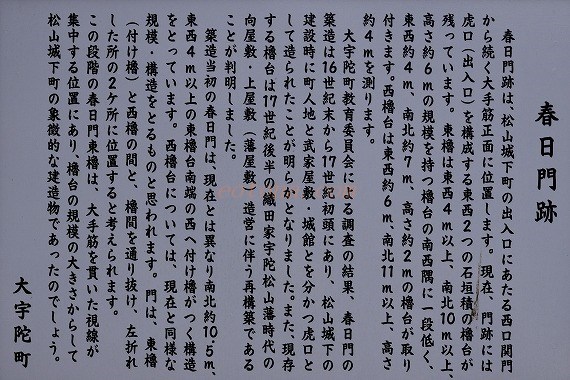 春日門跡
春日門跡は、松山城下町の出入口にあたる西口関門
から続く大手筋正面に位置します。現在、門跡には
虎口(出入口)を構成する東西2つの石垣積の櫓台が
残っています。東櫓は東西4m以上、南北10m以上、
高さ約6mの規模を持つ櫓台の南西隅に一段低く、
東西約4m、南北約7m、高さ約2mの櫓台が取り
付きます。西櫓台は東西約6m、南北11m以上、高さ
約4mを測ります。
大宇陀町教育委員会による調査の結果、春日門の
築造は16世紀末から17世紀初頭にあり、松山城下の
建設時に町人地と武家屋敷、城館とを分かつ虎口と
して造られたことが明らかとなりました。また、現存
する櫓台は17世紀後半の織田家宇陀松山藩時代の
向屋敷・上屋敷(藩屋敷)造営に伴う再構築である
ことが判明しました。
築造当初の春日門は、現在とは異なり南北約10.5m、
東西4m以上の東櫓台南端の西へ付け櫓がつく構造
をとっています。西櫓台については、現在と同様な
規模・構造をとるものと思われます。門は、東櫓
(付け櫓)と西櫓の間と、櫓間を通り抜け、左折れ
した所の2ケ所に位置すると考えられます。
この段階の春日門東櫓は、大手筋を貫いた視線が
集中する位置にあり、櫓台の規模の大きさからして
松山城下町の象徴的な建造物であったのでしょう。
大宇陀町